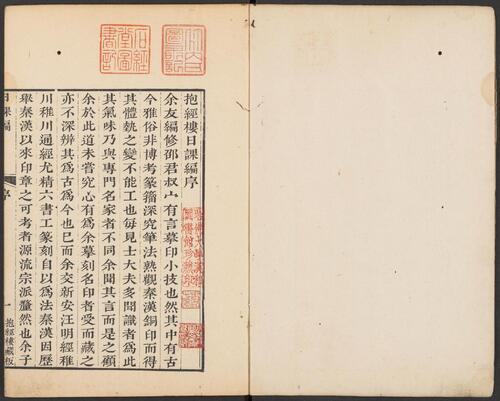 抱經樓日課編序
余友編修邵君叔宀有言摹印小技也然其中有古
今雅俗非博考篆籀深究筆法熟觀秦漢銅印而得
其體埶之變不能工也每見士大夫多聞識者為此
其氣味乃與專門名家者不同余聞其言而是之顧
余於此道未嘗究心有為余摹刻名印者受而藏之
亦不深辨其為古為今也已而余交新安汪明經稚
川稚川通經尤精六書工篆刻自以為法秦漢因歷
舉秦漢以來印章之可考者源流宗派釐然也余子
日課編
序
一
抱經樓藏板